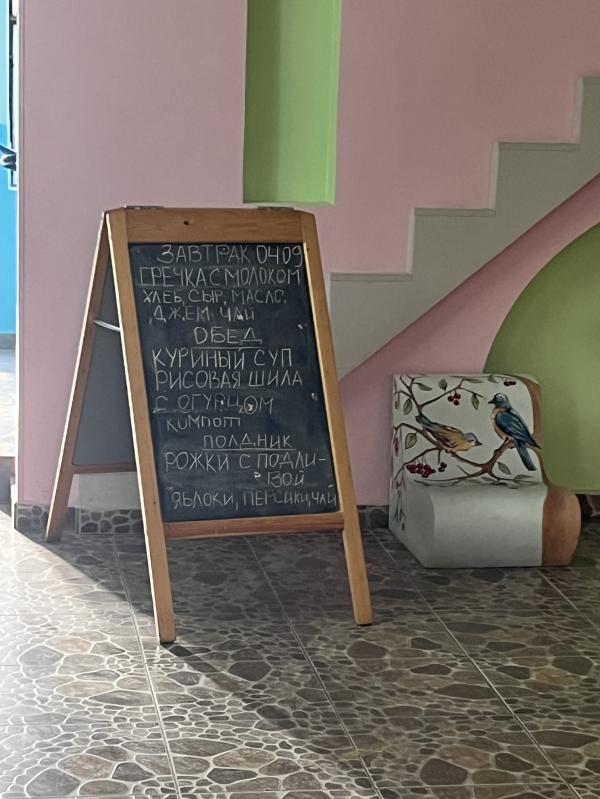 ЗАВТРАК 04.09
ГРЕЧКА С МОЛОКОМ
ХЛЕБ, СЫР, МАСЛО,
ДЖЕМ, ЧАЙ
ОБЕД
КУРИНЫЙ СУП
РИСОВАЯ ШИЛА
С ОГУРЦОМ
КОМПОТ
ПОЛДНИК
РОЖКИ С ПОДЛИ-
ВОЙ
ЯБЛОКИ, ПЕРСИКИ, ЧАЙ